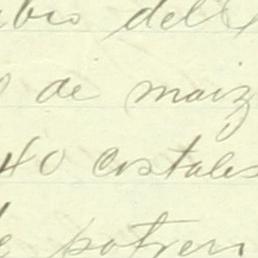 del
de maiz
40 costales
potrer